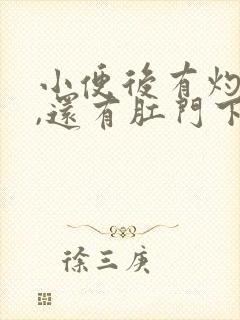 小便後有灼
,還有肛門下
徐三庚